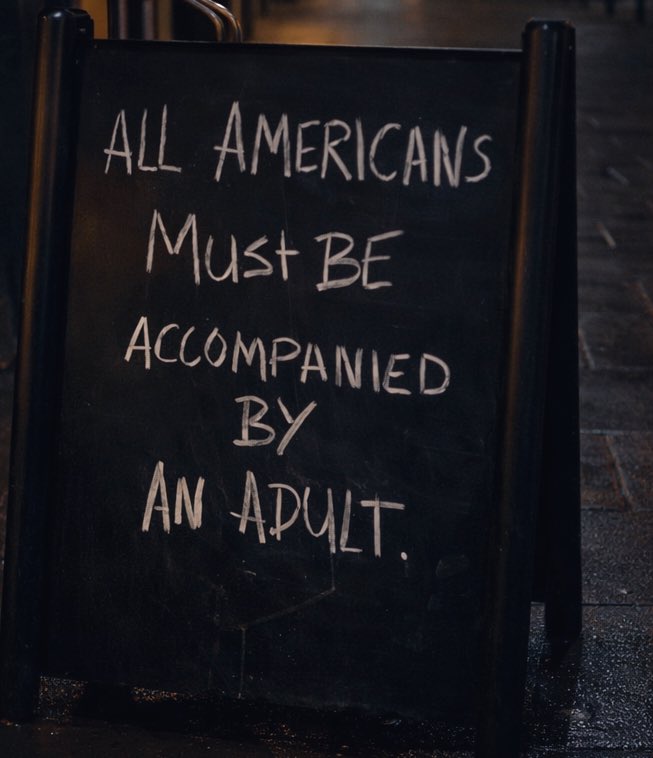 ALL AMERICANS
Must BE
ACCOMPANIED
BY
AN ADULT.